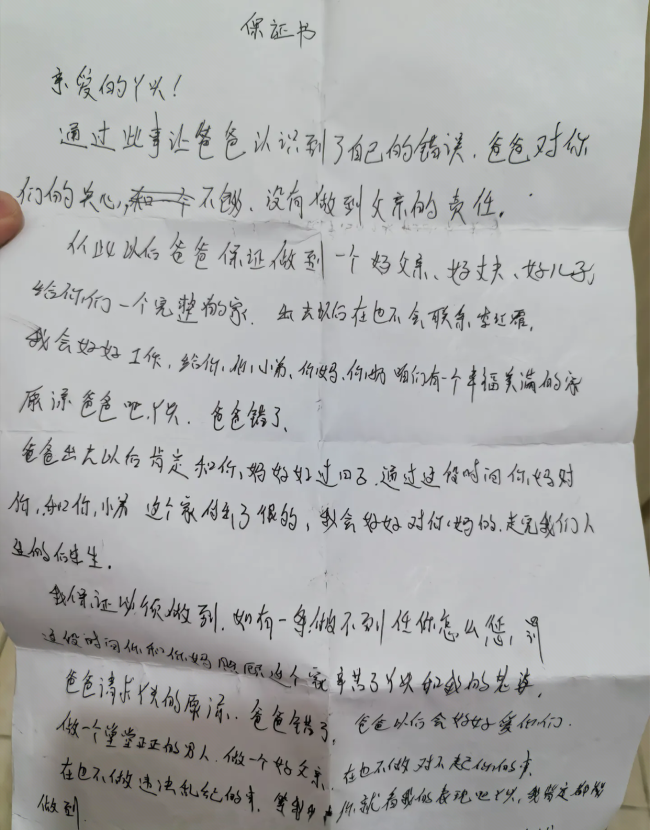 保证书
亲爱的丫头!
通过此事让爸爸认识到了自己的错误.爸爸对你
们的关心,不够、没有做到父亲的责任。
从此以后爸爸保证做到一个好父亲、好丈夫、好儿子,
给你们一个完整的家.出去以后在也不会联系李红霞,
我会好好工作,给你,和小弟、你妈、你奶咱们有一个幸福美满的家
原谅爸爸吧丫头.爸爸错了、
爸爸出去以后肯定和你妈好好过日子.通过这段时间你妈对
你,和你小弟 这个家付出了很的,我会好好对你妈的.走完我们人
生的后半生。
我保证以须做到.如有一条做不到任你怎么惩罚
这段时间你和你妈照顾这个家辛苦了丫头和我的老婆,
爸爸请求丫头的原谅.爸爸错了,爸爸以后会好好爱你们.
做一个堂堂正正的男人.做一个好父亲.在也不做对不起你们的事.
在也不做违法乱纪的事.就看我的表现吧丫头,我肯定都能
做到